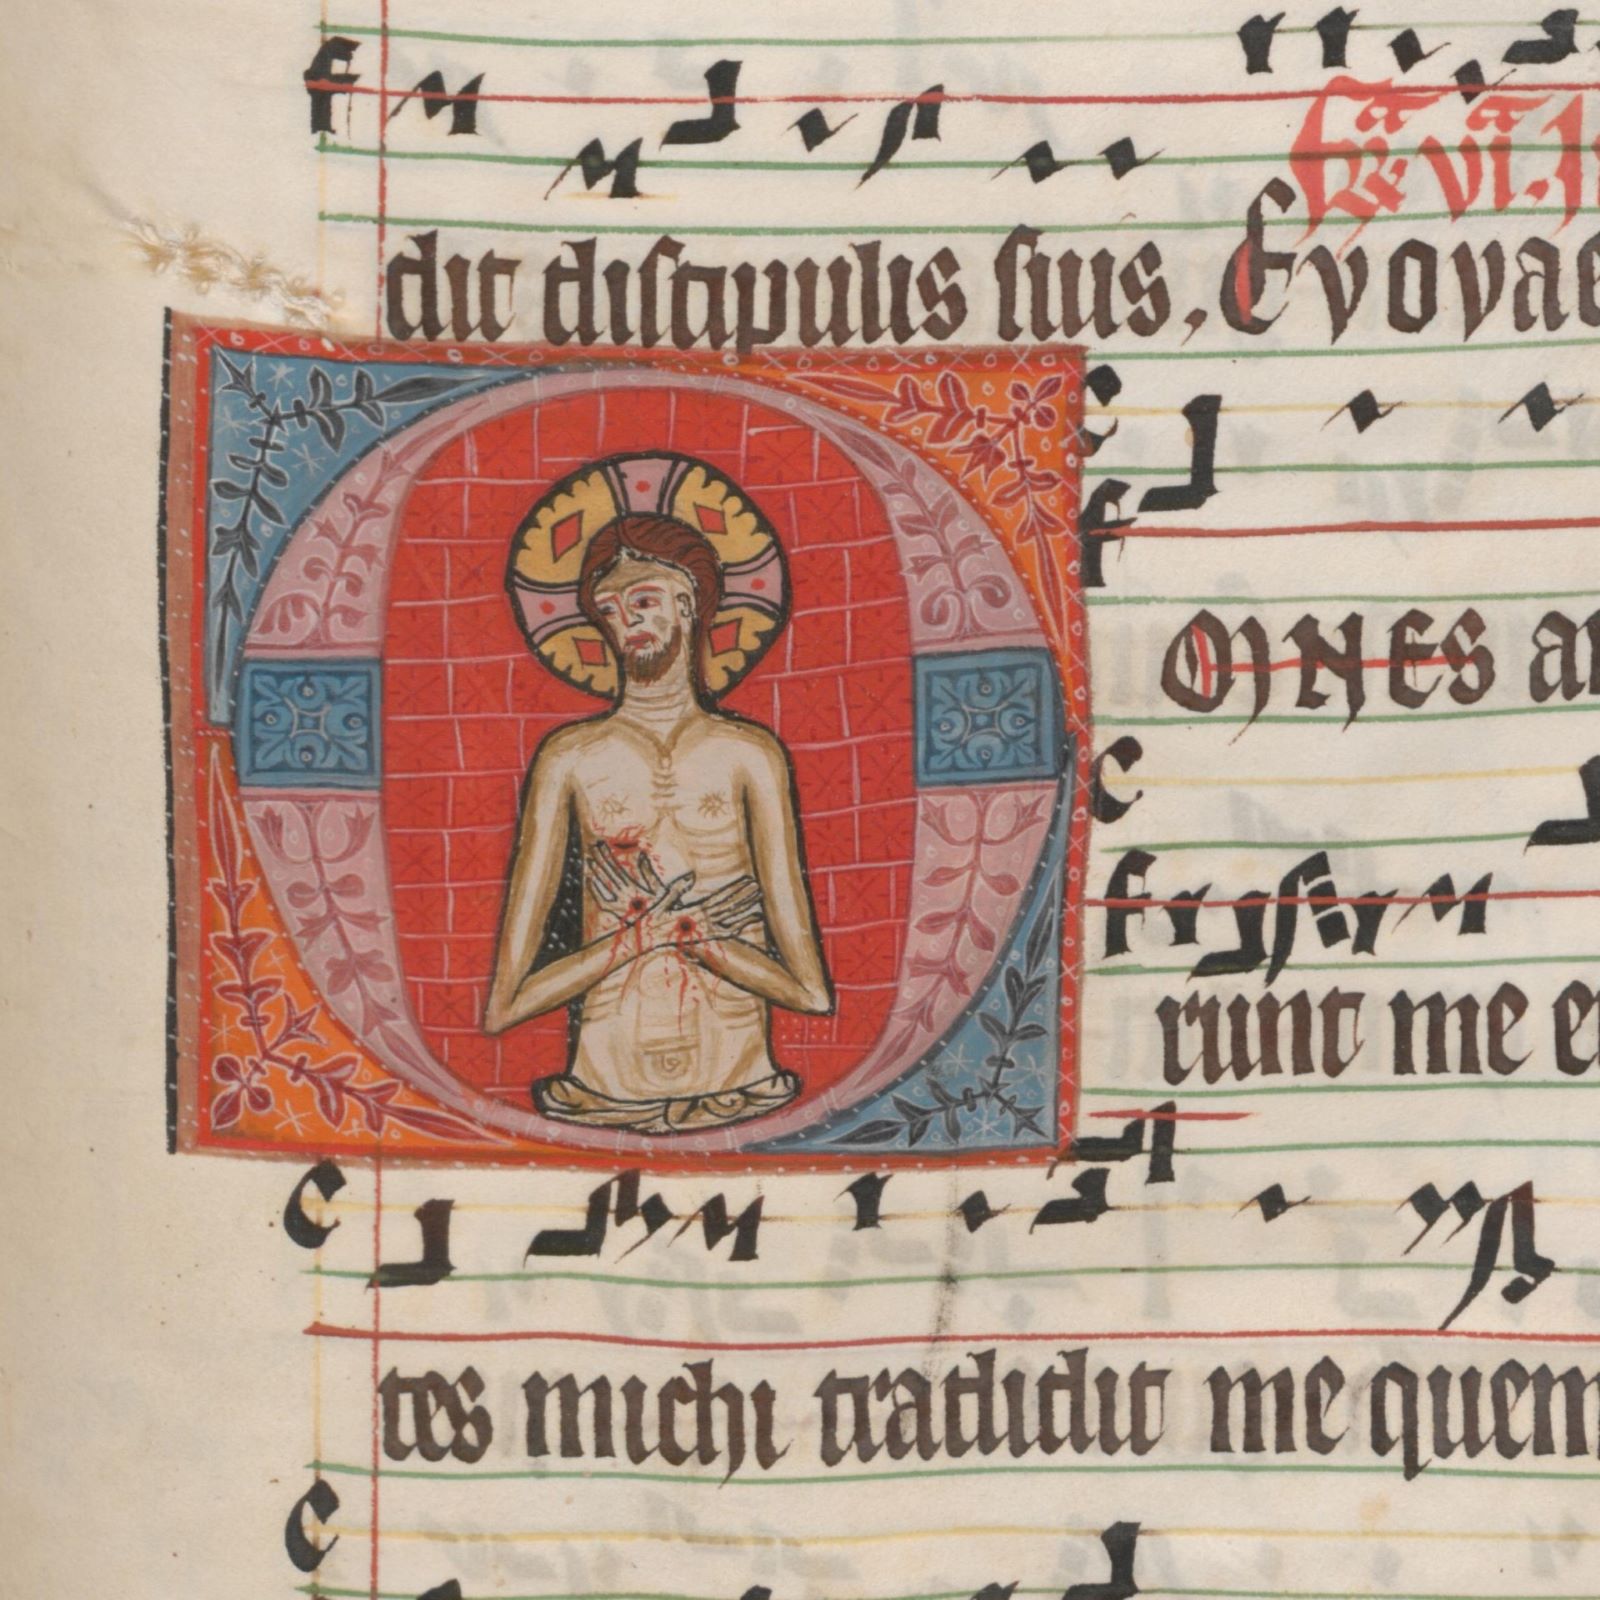 f
Fra vi. I
dit discipulis suis. Evovae
c
f
OMNES a
c
f
runt me e
c
tes michi tradidit me quem
c